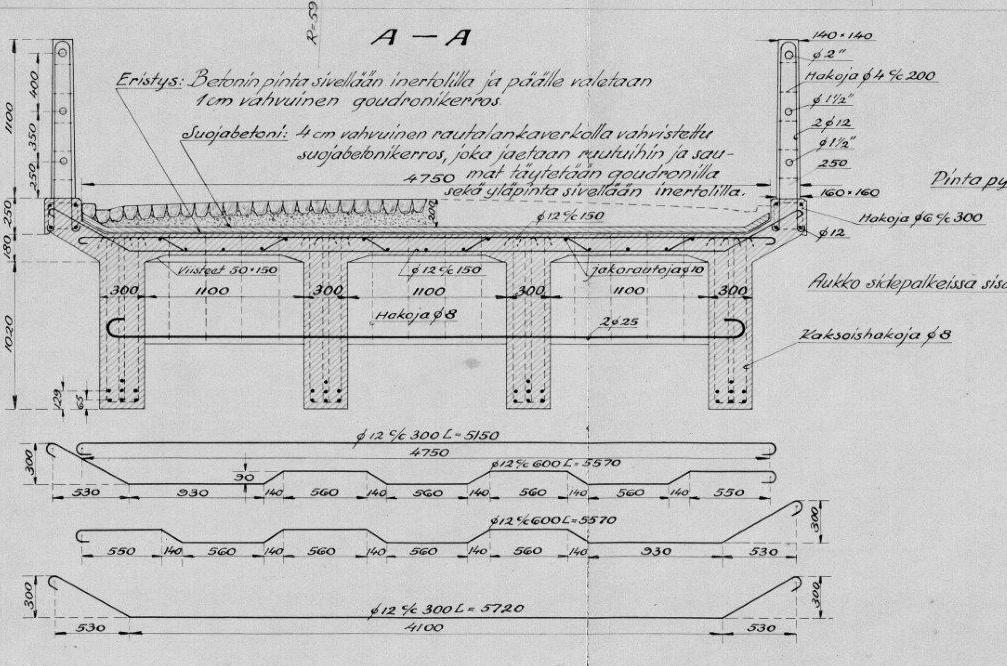 R=59
A — A
140×140
ϕ 2"
Hakoja ϕ 4 c/c 200
ϕ 1½"
2 ϕ 12
ϕ 1½"
250
160×160
Eristys: Betonin pinta sivellään inertolilla ja päälle valetaan
1 cm vahvuinen goudronikerros.
Suojabetoni: 4 cm vahvuinen rautalankaverkolla vahvistettu
suojabetonikerros, joka jaetaan ruutuihin ja sau-
mat täytetään goudronilla
sekä yläpinta sivellään inertolilla.
4750
1100
400
350
250
250
180
1020
129
65
200
Pinta
Hakoja ϕ 6 c/c 300
ϕ 12
ϕ 12 c/c 150
Viisteet 50×150
ϕ 12 c/c 150
Jakorautoja ϕ 10
Aukko sidepalkeissa
300 1100 300 1100 300 1100 300
Hakoja ϕ 8
2 ϕ 25
Kaksoishakoja ϕ 8
ϕ 12 c/c 300 L=5150
4750
300
90
ϕ 12 c/c 600 L=5570
530 930 140 560 140 560 140 560 140 560 140 550
ϕ 12 c/c 600 L=5570
300
550 140 560 140 560 140 560 140 560 140 930 530
300
ϕ 12 c/c 300 L=5720
300
530 4100 530